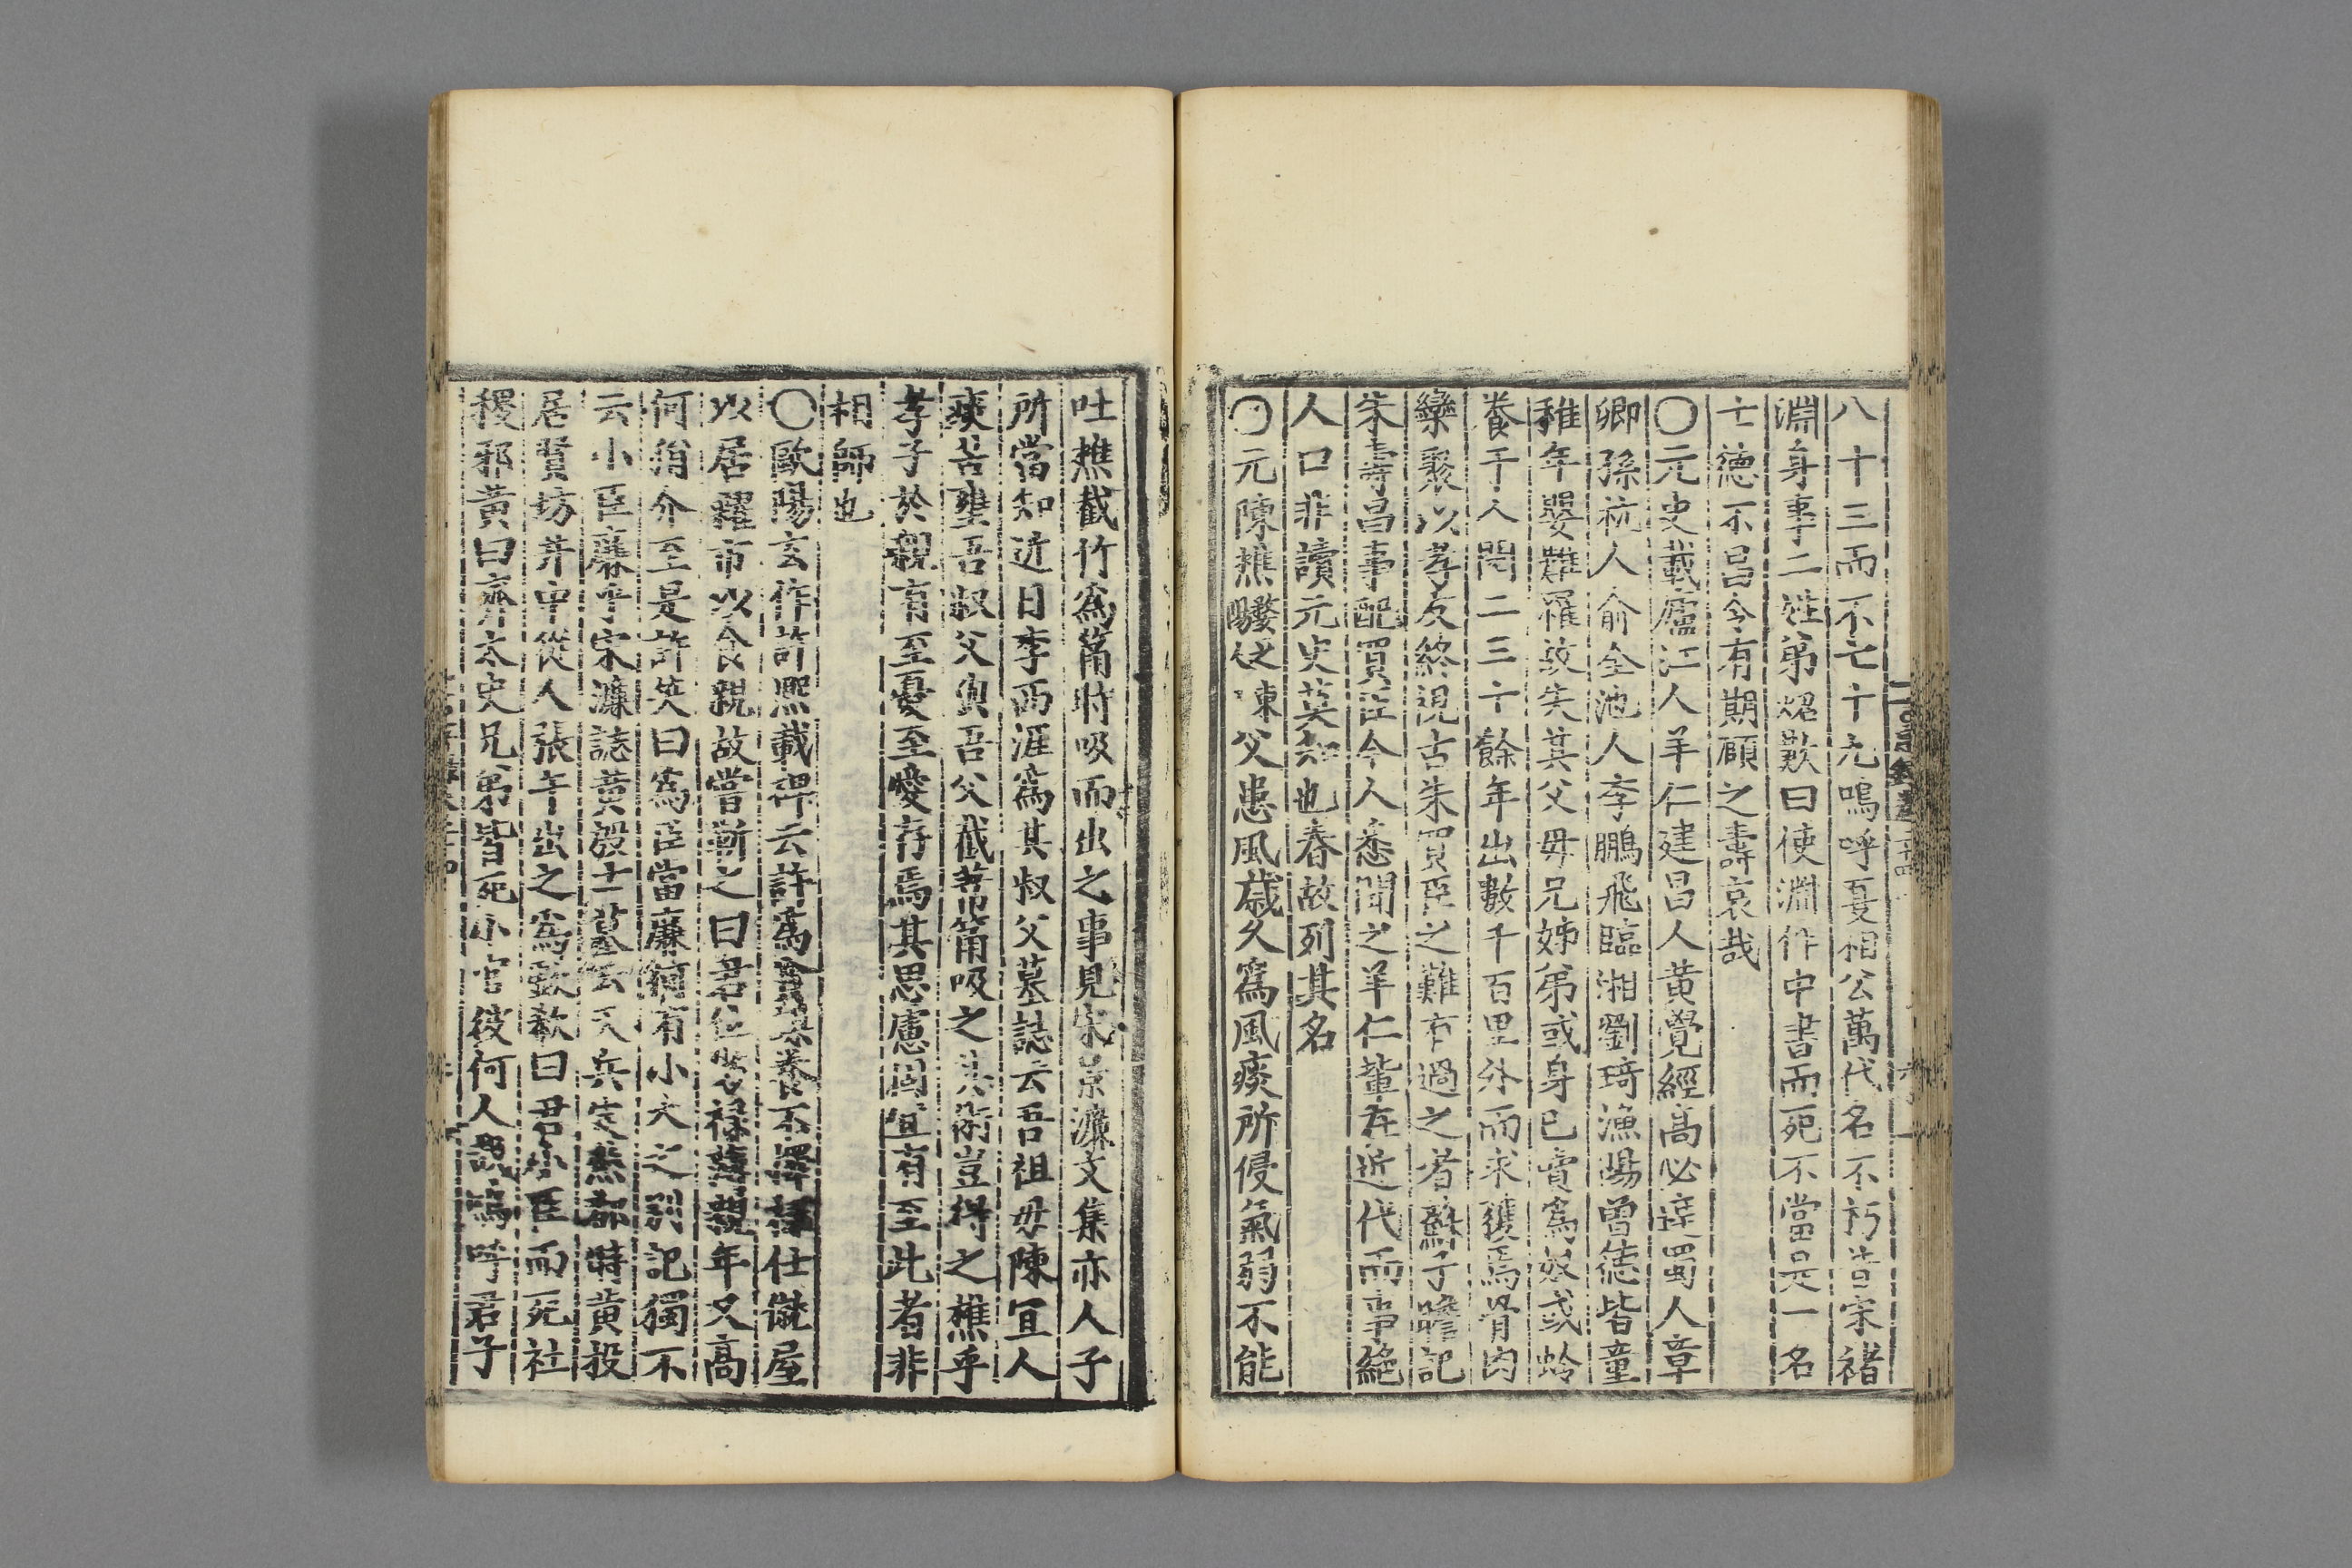 八十三而不亡十九嗚呼吾相公萬代名不朽昔宋褚
淵身事二姓弟炤歎曰使淵作中書而死不當是一名
士德不昌今有期頤之壽哀哉
〇元史載廬江人羊仁建昌人黃覺經高必達蜀人章
卿孫杭人俞全池人李鵬飛臨湘劉琦漁陽曾德皆童
稚年嬰難罹故失其父母兄姊弟或身已賣為奴或蛉
養于人閱二三十餘年出數千百里外而求獲焉骨肉
欒聚以孝友終視古朱買臣之難有過之者蘇子瞻記
朱壽昌事配買臣今人悉聞之羊仁輩在近代而事絕
人口非讀元史莫知也春故列其名
〇元陳樵 之 父患風歲久寫風痰所侵氣弱不能
吐樵截竹為筩時吸而出之事見宋景濂文集亦人子
所當知近日李西涯為其叔父墓誌云吾祖母陳宜人
痰苦壅吾叔父與吾父截葦筩吸之其術豈得之樵乎
孝子於親有至憂至愛存焉其思慮固宜有至此者非
相師也
〇歐陽玄作許熙載碑云許為會 養不擇仕僦屋
以居糴市以食親故嘗斬之曰君仕 祿薄親年又高
何狷介至是許笑曰為臣當廉顧有小大之別記獨不
云小臣廉乎宋濂誌黃殷士墓云天兵定燕都時黃投
居賢坊井中從人張午出之為欷歔曰君小臣而死社
稷邪黃曰齊太史兄弟皆死小官彼何人哉嗚呼君子